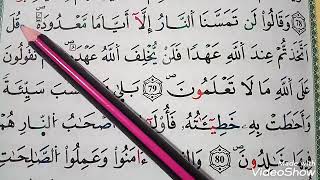 78 وَقَالُواْ لَن تَمَسَّنَا اَ۬لنَّارُ إِلَّآ أَيَّاماٗ مَّعْدُودَةٗ قُلَ
اَتَّخَذتُّمْ عِندَ اَ۬للَّهِ عَهْداٗ فَلَنْ يُّخْلِفَ اَ۬للَّهُ عَهْدَهُۥٓ تَقُولُونَ
عَلَى اَ۬للَّهِ مَا لَا تَعْلَمُونَ 79 بَلَىٰ سَيِّئَةٗ
وَأَحَٰطَتْ بِهِۦ خَطِيٓـَٰٔتُهُۥ أَصْحَٰبُ اُ۬لنّ۪ارِ هُمْ
خَٰلِدُونَ 80 ءَامَنُواْ وَعَمِلُواْ اُ۬لصَّٰلِحَٰتِ
Made with
VideoShow